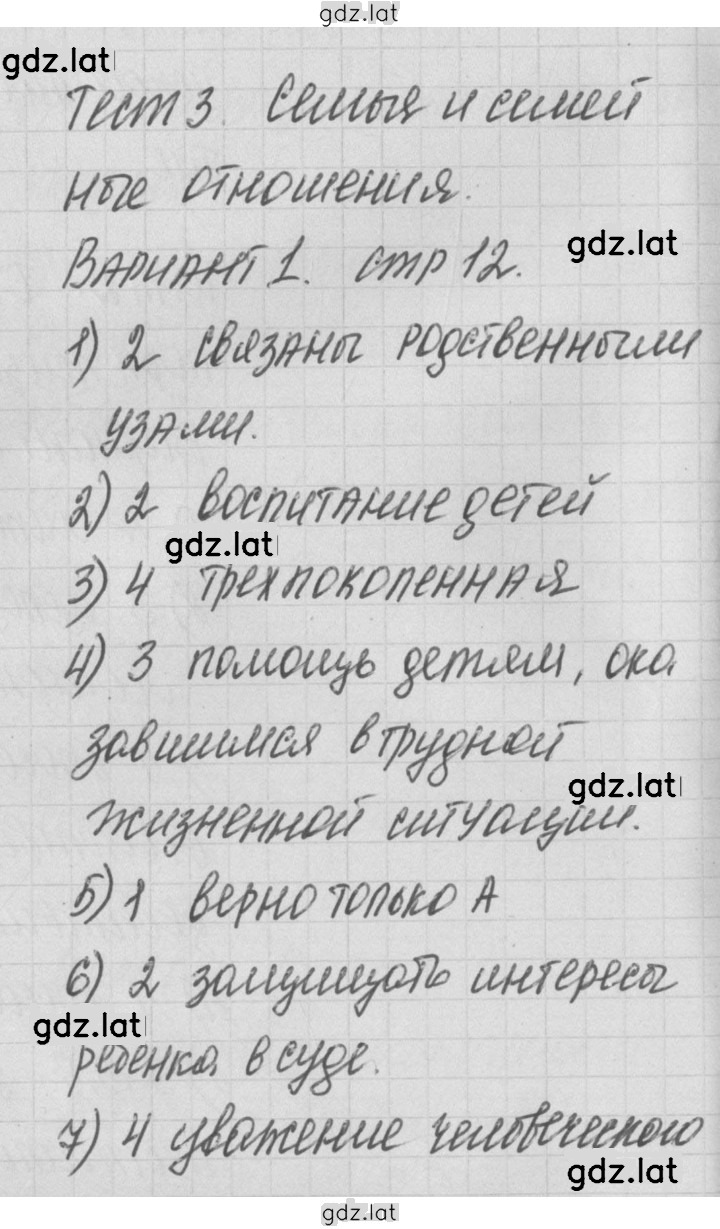 gdz.lat
gdz.lat
Тест 3. Семья и семей
ные отношения.
gdz.lat
Вариант 1. стр 12.
1) 2 связаны родственными
узами.
2) 2 воспитание детей
gdz.lat
3) 4 трехпоколенная
4) 3 помощь детям, ока
завшимся в трудной
gdz.lat
жизненной ситуации.
5) 1 верно только А
6) 2 защищать интересы
gdz.lat
ребенка в суде.
7) 4 уважение человеческого
gdz.lat
gdz.lat